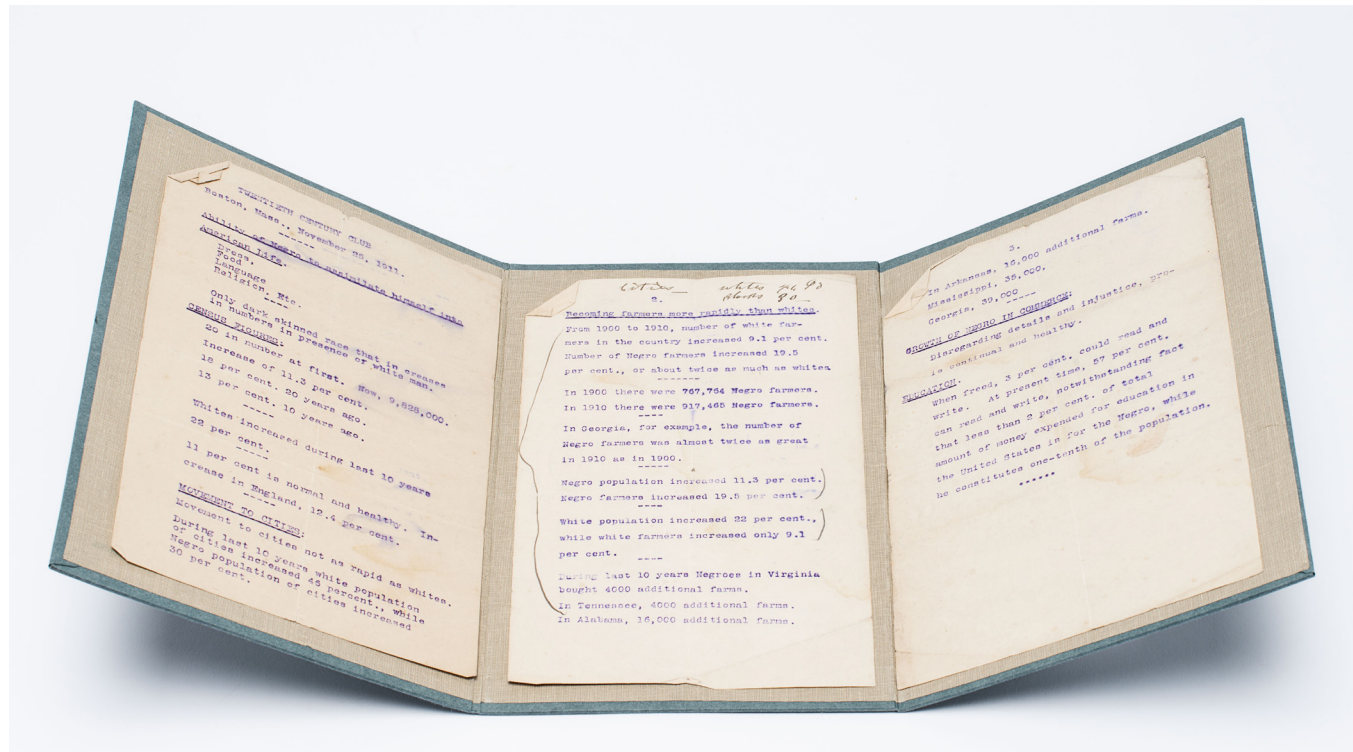 TWENTIETH CENTURY CLUB
Boston, Mass., November 25, 1911.
------
Ability of Negro to assimilate himself into
American Life.
Dress,
Food
Language
Religion, Etc.
----
Only dark skinned race that increases
in numbers in presence of white man.
CENSUS FIGURES:
20 in number at first. Now, 9,828,000.
Increase of 11.3 per cent.
18 per cent. 20 years ago.
13 per cent. 10 years ago.
-----
Whites increased during last 10 years
22 per cent.
-----
11 per cent is normal and healthy. In-
crease in England, 12.4 per cent.
-----
MOVEMENT TO CITIES:
Movement to cities not as rapid as whites.
During last 10 years white population
of cities increased 45 percent., while
Negro population of cities increased
30 per cent.
Cities whites
blacks
2.
Becoming farmers more rapidly than whites.
From 1900 to 1910, number of white far-
mers in the country increased 9.1 per cent.
Number of Negro farmers increased 19.5
per cent., or about twice as much as whites
-------
In 1900 there were 767,764 Negro farmers.
In 1910 there were 917,465 Negro farmers.
----
In Georgia, for example, the number of
Negro farmers was almost twice as great
in 1910 as in 1900.
-----
Negro population increased 11.3 per cent.
Negro farmers increased 19.5 per cent.
----
White population increased 22 per cent.,
while white farmers increased only 9.1
per cent.
----
During last 10 years Negroes in Virginia
bought 4000 additional farms.
In Tennessee, 4000 additional farms.
In Alabama, 16,000 additional farms.
3.
In Arkansas, 16,000 additional farms.
Mississippi, 35,000.
Georgia, 39,000
-----
GROWTH OF NEGRO IN COMMERCE:
Disregarding details and injustice, pro-
is continual and healthy.
EDUCATION.
When freed, 3 per cent. could read and
write. At present time, 57 per cent.
can read and write, notwithstanding fact
that less than 2 per cent. of total
amount of money expended for education in
the United States is for the Negro, while
he constitutes one-tenth of the population.
******